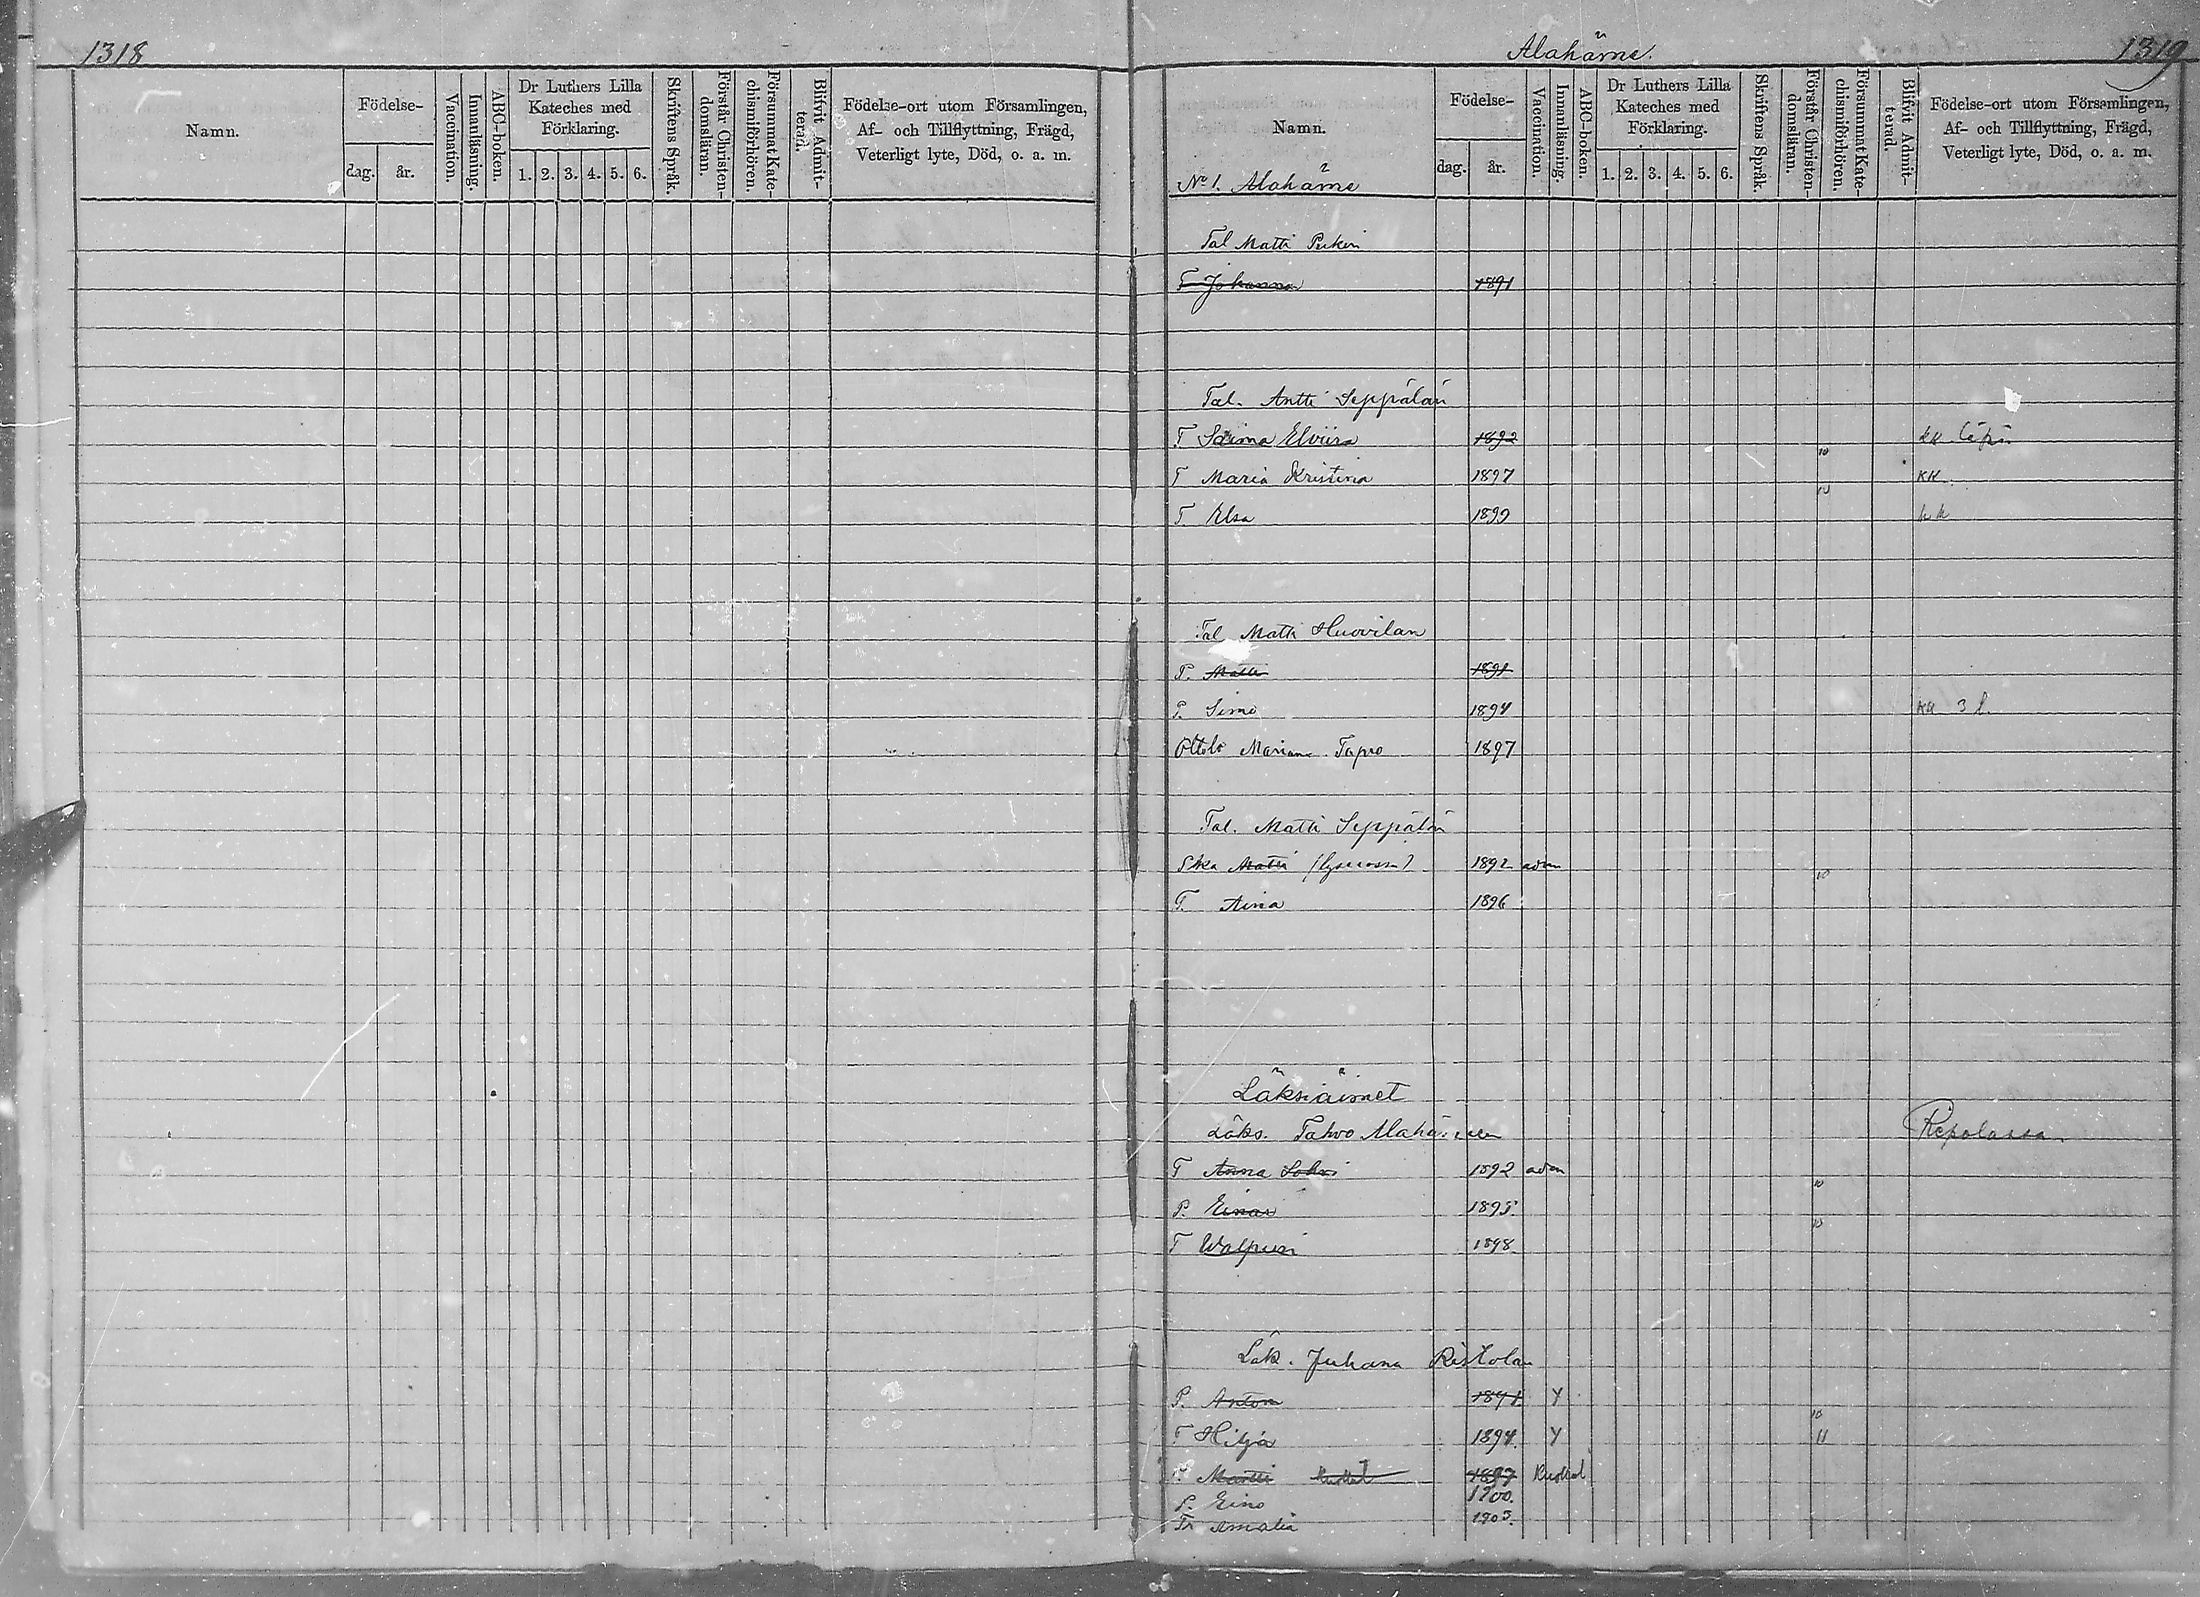 1318
Namn.
Födelse-
dag. år.
Vaccination.
Innanläsning.
ABC-boken.
Dr Luthers Lilla
Kateches med
Förklaring.
1. 2. 3. 4. 5. 6.
Skriftens Språk.
Förstår Christen-
domsläran.
Försummat Kate-
chismiförhören.
Blifvit Admit-
terad.
Födelse-ort utom Församlingen,
Af- och Tillflyttning, Frägd,
Veterligt lyte, Död, o. a. m.
Alahärne.
1319
Namn.
Födelse-
dag. år.
Vaccination.
Innanläsning.
ABC-boken.
Dr Luthers Lilla
Kateches med
Förklaring.
1. 2. 3. 4. 5. 6.
Skriftens Språk.
Förstår Christen-
domsläran.
Försummat Kate-
chismiförhören.
Blifvit Admit-
terad.
Födelse-ort utom Församlingen,
Af- och Tillflyttning, Frägd,
Veterligt lyte, Död, o. a. m.
No 1. Alahärne
Tal Matti
T Johanna 1891
Tal. Antti Seppälän
T Saima Elviira 1892 kk läpi
10
T Maria Kristiina 1897 kk
10
T Elsa 1899 kk
Tal Matti Huovilan
P. Matti 1891
P. Simo 1894 kk 3 l.
Ottolo Mariana Tapro 1897
Tal. Matti Seppälän
Pka Matti 1892 adm
10
T. Aina 1896
Läksiäimet
Läks. Tahvo Alahärneen Repolassa.
T Anna Sohvi 1892 adm
10
P. Einar 1895.
10
T Walpuri 1898
Läk. Juhana Ristolan
P. Anton 1891 y
10
T Hilja 1894. y 11
P Martti Kuollut 1897 Kuollut
P. Eino 1900.
Tr Amalia 1905.